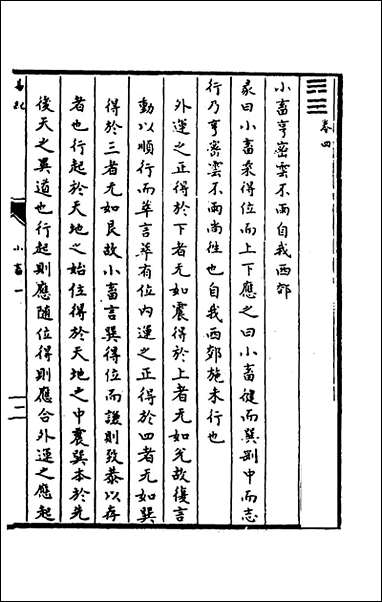 ䷈
卷四
小畜亨密雲不雨自我西郊
彖曰小畜柔得位而上下應之曰小畜健而巽剛中而志
行乃亨密雲不雨尚往也自我西郊施未行也
外運之正得於下者无如震得於上者无如兌故復言
動以順行而萃言萃有位內運之正得於四者无如巽
得於三者无如艮故小畜言巽得位而謙則致恭以存
者也行起於天地之始位得於天地之中震巽本於先
後天之異道也行起則應隨位得則應合外運之應起
易
小畜一